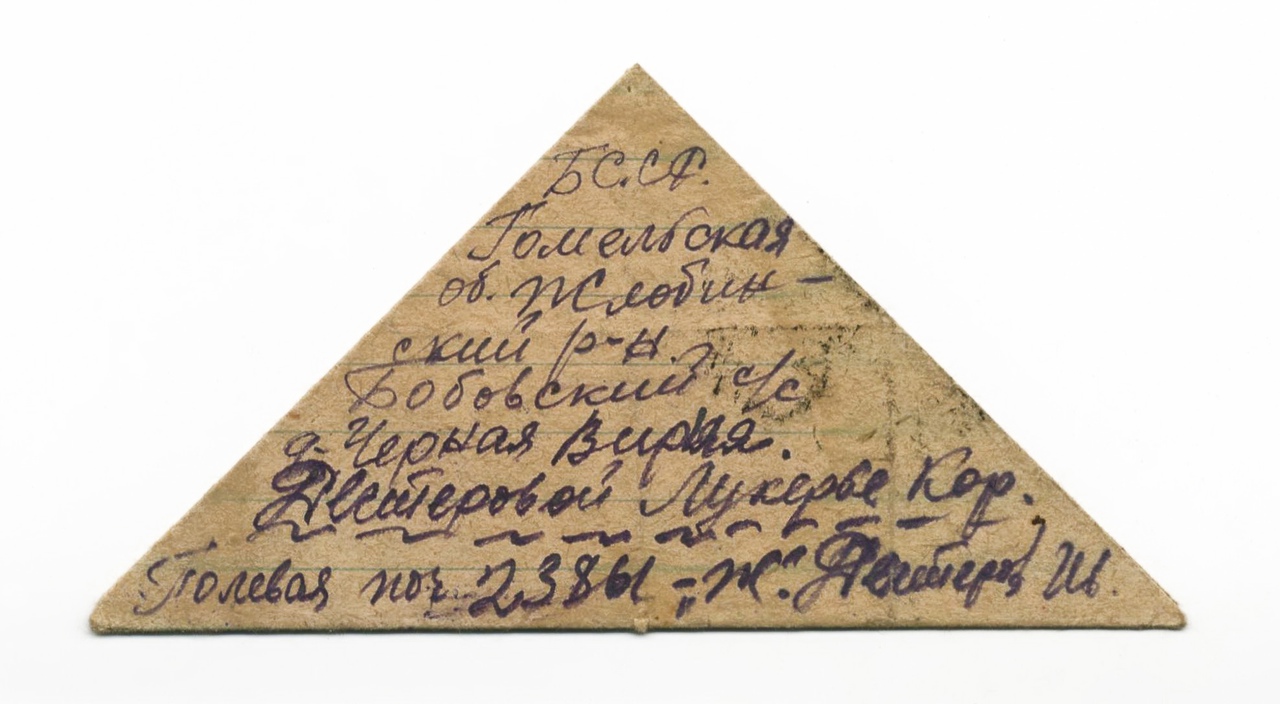 БС.СР.
Гомельская
об. Жлобин-
ский р-н.
Бобовский с/с
д. Черная Вирня.
Дегтеровой Лукерье Кор.
Полевая поч. 23861-"Ж". Ив.